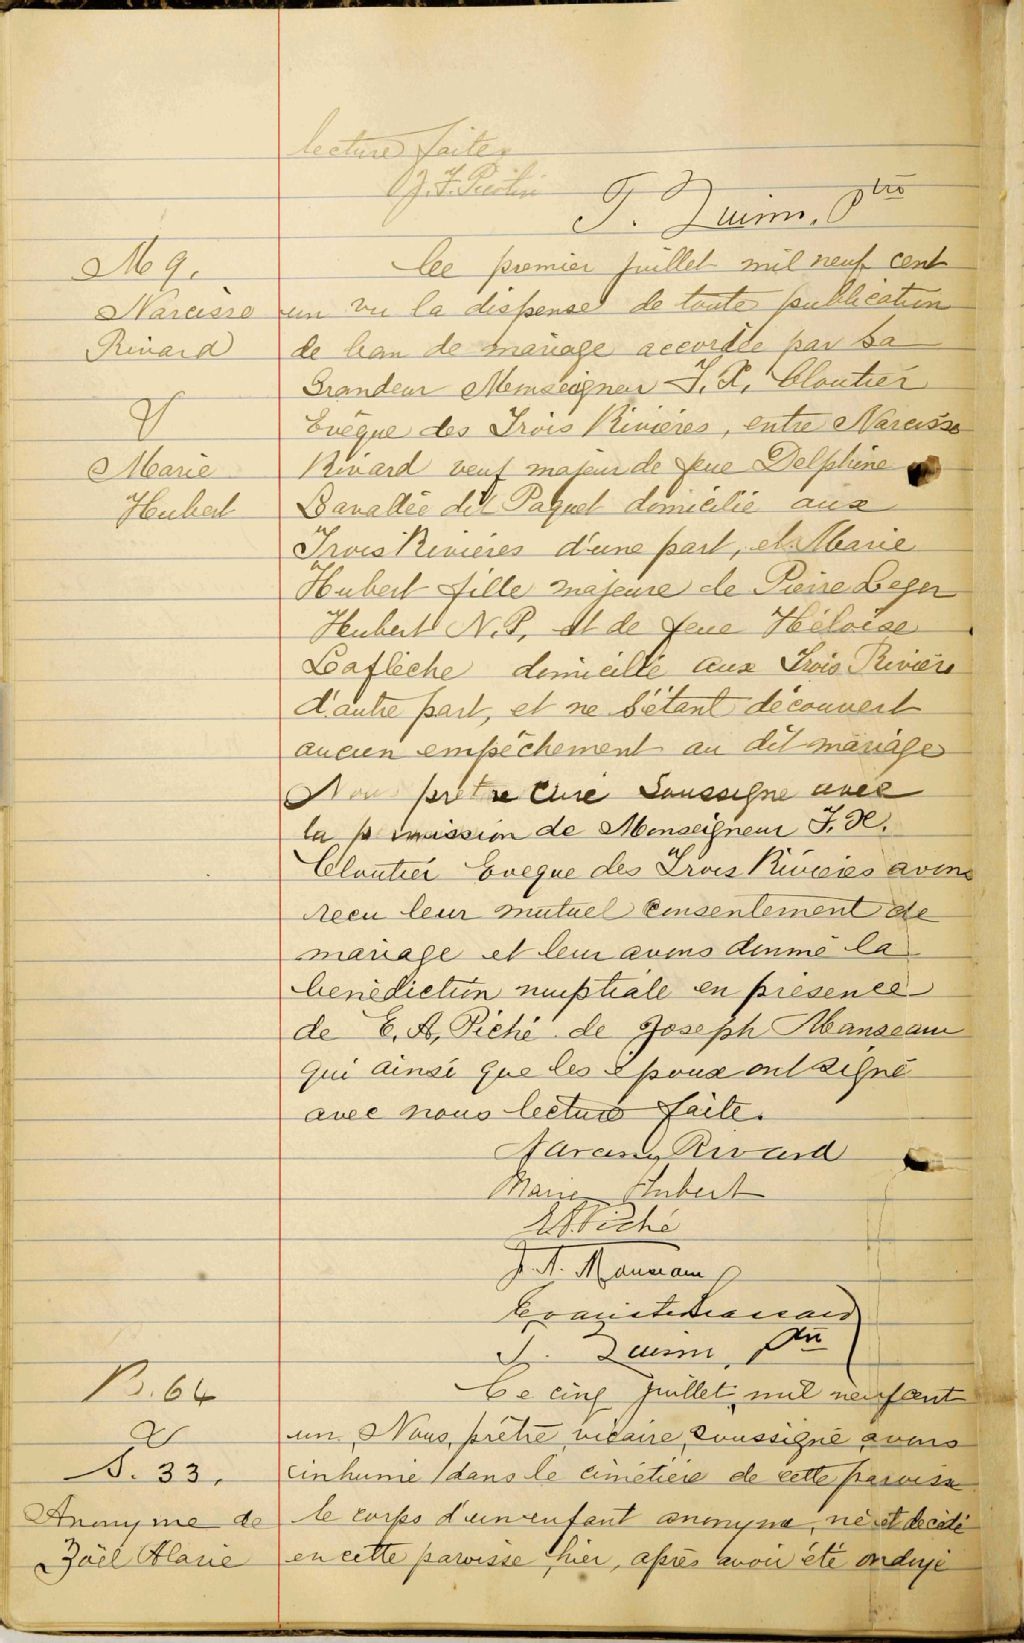 lecture faite.
T. Quinn, Ptre
M 9.
Narcisse
Rivard
&
Marie
Hubert
Ce premier juillet mil neuf cent
un vu la dispense de toute publication
de ban de mariage accordée par Sa
Grandeur Monseigneur F. X. Cloutier
Evêque des Trois Rivières, entre Narcisse
Rivard veuf majeur de feue Delphine
Lavallée dit Paquet domicilié aux
Trois Rivières d'une part, et Marie
Hubert fille majeure de Pierre Leger
Hubert N.P. et de feue Héloïse
Laflèche domicilié aux Trois Rivières
d'autre part, et ne s'étant découvert
aucun empêchement au dit mariage
Nous prêtre curé soussigné avec
la permission de Monseigneur F. X.
Cloutier Eveque des Trois Rivières avons
recu leur mutuel consentement de
mariage et leur avons donné la
bénédiction nuptiale en présence
de E. A. Piché de Joseph Manseau
qui ainsi que les époux ont signé
avec nous lecture faite.
Narcisse Rivard
Marie Hubert
E A Piché
J. A. Manseau
T. Quinn, Ptre
B. 64
&
S. 33,
Anonyme de
Zoël Alarie
Ce cinq juillet, mil neuf cent
un, Nous, prêtre, vicaire, soussigné avons
inhumé dans le cimétière de cette paroisse
le corps d'un enfant anonyme, né et décédé
en cette paroisse, hier, après avoir été ondoyé